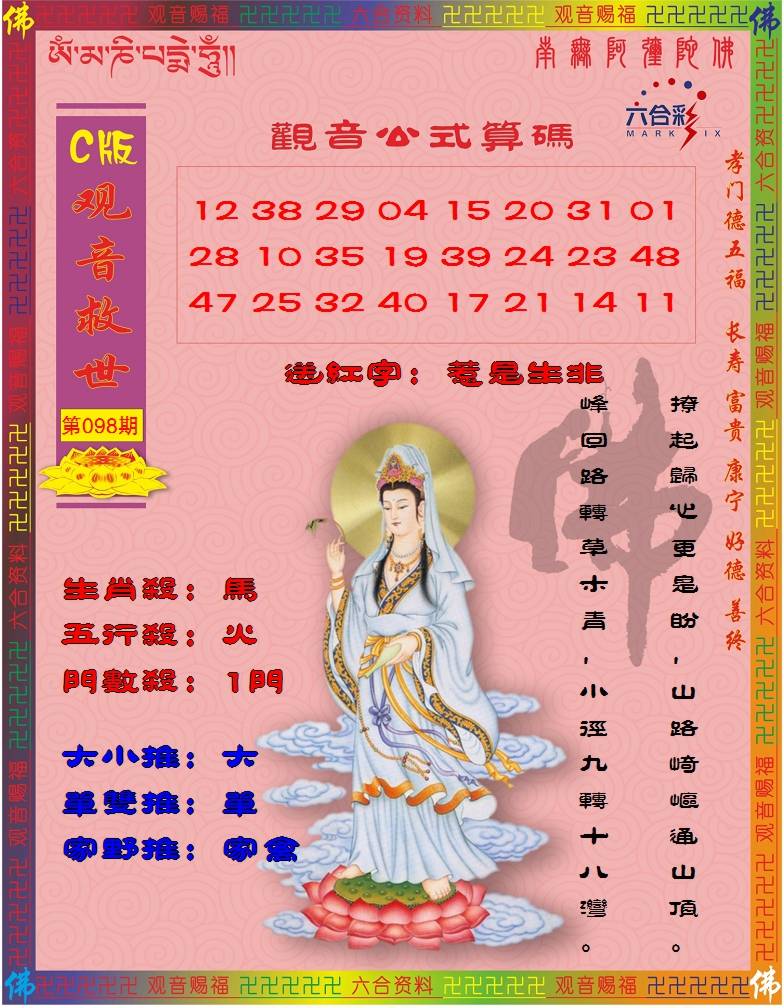 佛 卍卍卍卍卍 观音赐福 卍卍卍卍卍 六合资料 卍卍卍卍卍 观音赐福 卍卍卍卍卍 佛
南無阿彌陀佛
六合彩
MARK SIX
C版
观音救世
第098期
觀音公式算碼
12 38 29 04 15 20 31 01
28 10 35 19 39 24 23 48
47 25 32 40 17 21 14 11
孝门德五福 长寿 富贵 康宁 好德 善终
送紅字：惹是生非
撩起歸心更是盼，山路崎嶇通山頂。
峰回路轉草木青，小徑九轉十八灣。
佛
生肖殺：馬
五行殺：火
門數殺：1門
大小推：大
單雙推：單
家野推：家禽
佛 卍卍卍卍卍 观音赐福 卍卍卍卍卍 六合资料 卍卍卍卍卍 观音赐福 卍卍卍卍卍 佛